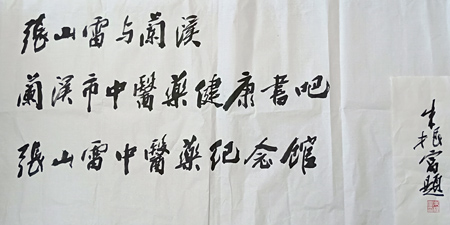 張山雷与蘭溪
蘭溪市中醫藥健康書吧
張山雷中醫藥纪念館
生振富題